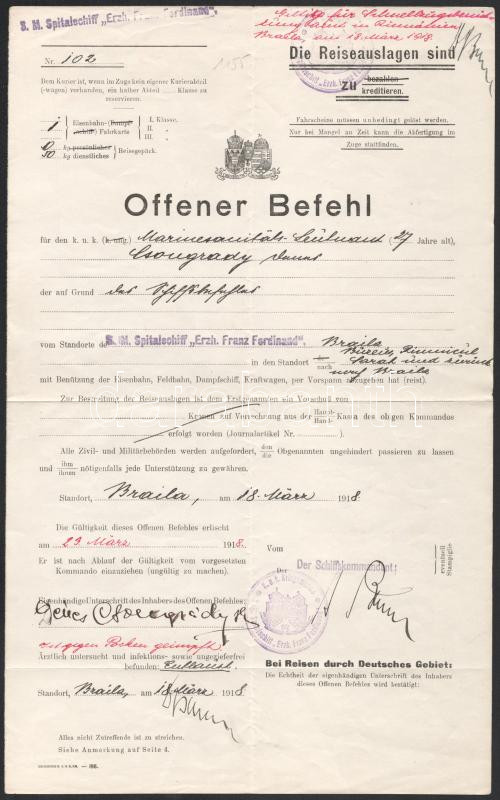 S. M. Spitalschiff „Erzh. Franz Ferdinand“.
Braila, am 18. März 1918.
Nr. 102
1155
Die Reiseauslagen sind
zu bezahlen kreditieren.
Dem Kurier ist, wenn im Zuge kein eigener Kurierabteil
(-wagen) vorhanden, ein halber Abteil Klasse zu
reservieren.
Fahrscheine müssen unbedingt gelöst werden.
Nur bei Mangel an Zeit kann die Abfertigung im
Zuge stattfinden.
1 Eisenbahn- (Dampfschiff-) Fahrkarte I. Klasse.
II. „
III. „
kg persönliches
50 kg dienstliches Reisegepäck.
Offener Befehl
für den k. u. k. (k. ung.) Marinesanitäts-Leutnant (27 Jahre alt),
Csongrády Denes
der auf Grund des Schiffsbefehles
vom Standorte des S. M. Spitalschiff „Erzh. Franz Ferdinand“. Braila
in den Standort nach
Sarat und zurück
nach Braila
mit Benützung der Eisenbahn, Feldbahn, Dampfschiff, Kraftwagen, per Vorspann abzugehen hat (reist).
Zur Bestreitung der Reiseauslagen ist dem Erstgenannten ein Vorschuß von
Kronen auf Verrechnung aus der Haupt- Hand- Kassa des obigen Kommandos
erfolgt worden (Journalartikel Nr. ).
Alle Zivil- und Militärbehörden werden aufgefordert, den die Obgenannten ungehindert passieren zu lassen
und ihm ihnen nötigenfalls jede Unterstützung zu gewähren.
Standort, Braila, am 18. März 1918.
Die Gültigkeit dieses Offenen Befehles erlischt
am 23. März 1918.
Er ist nach Ablauf der Gültigkeit vom vorgesetzten
Kommando einzuziehen (ungültig zu machen).
Vom
Der Der Schiffskommandant:
eventuell Stampiglie
Eigenhändige Unterschrift des Inhabers des Offenen Befehles:
Dénes Csongrády
ist gegen Pocken geimpft.
Ärztlich untersucht und infektions- sowie ungezieferfrei
befunden:
Standort, Braila, am 18. März 1918
Bei Reisen durch Deutsches Gebiet:
Die Echtheit der eigenhändigen Unterschrift des Inhabers
dieses Offenen Befehles wird bestätigt:
Alles nicht Zutreffende ist zu streichen.
Siehe Anmerkung auf Seite 4.